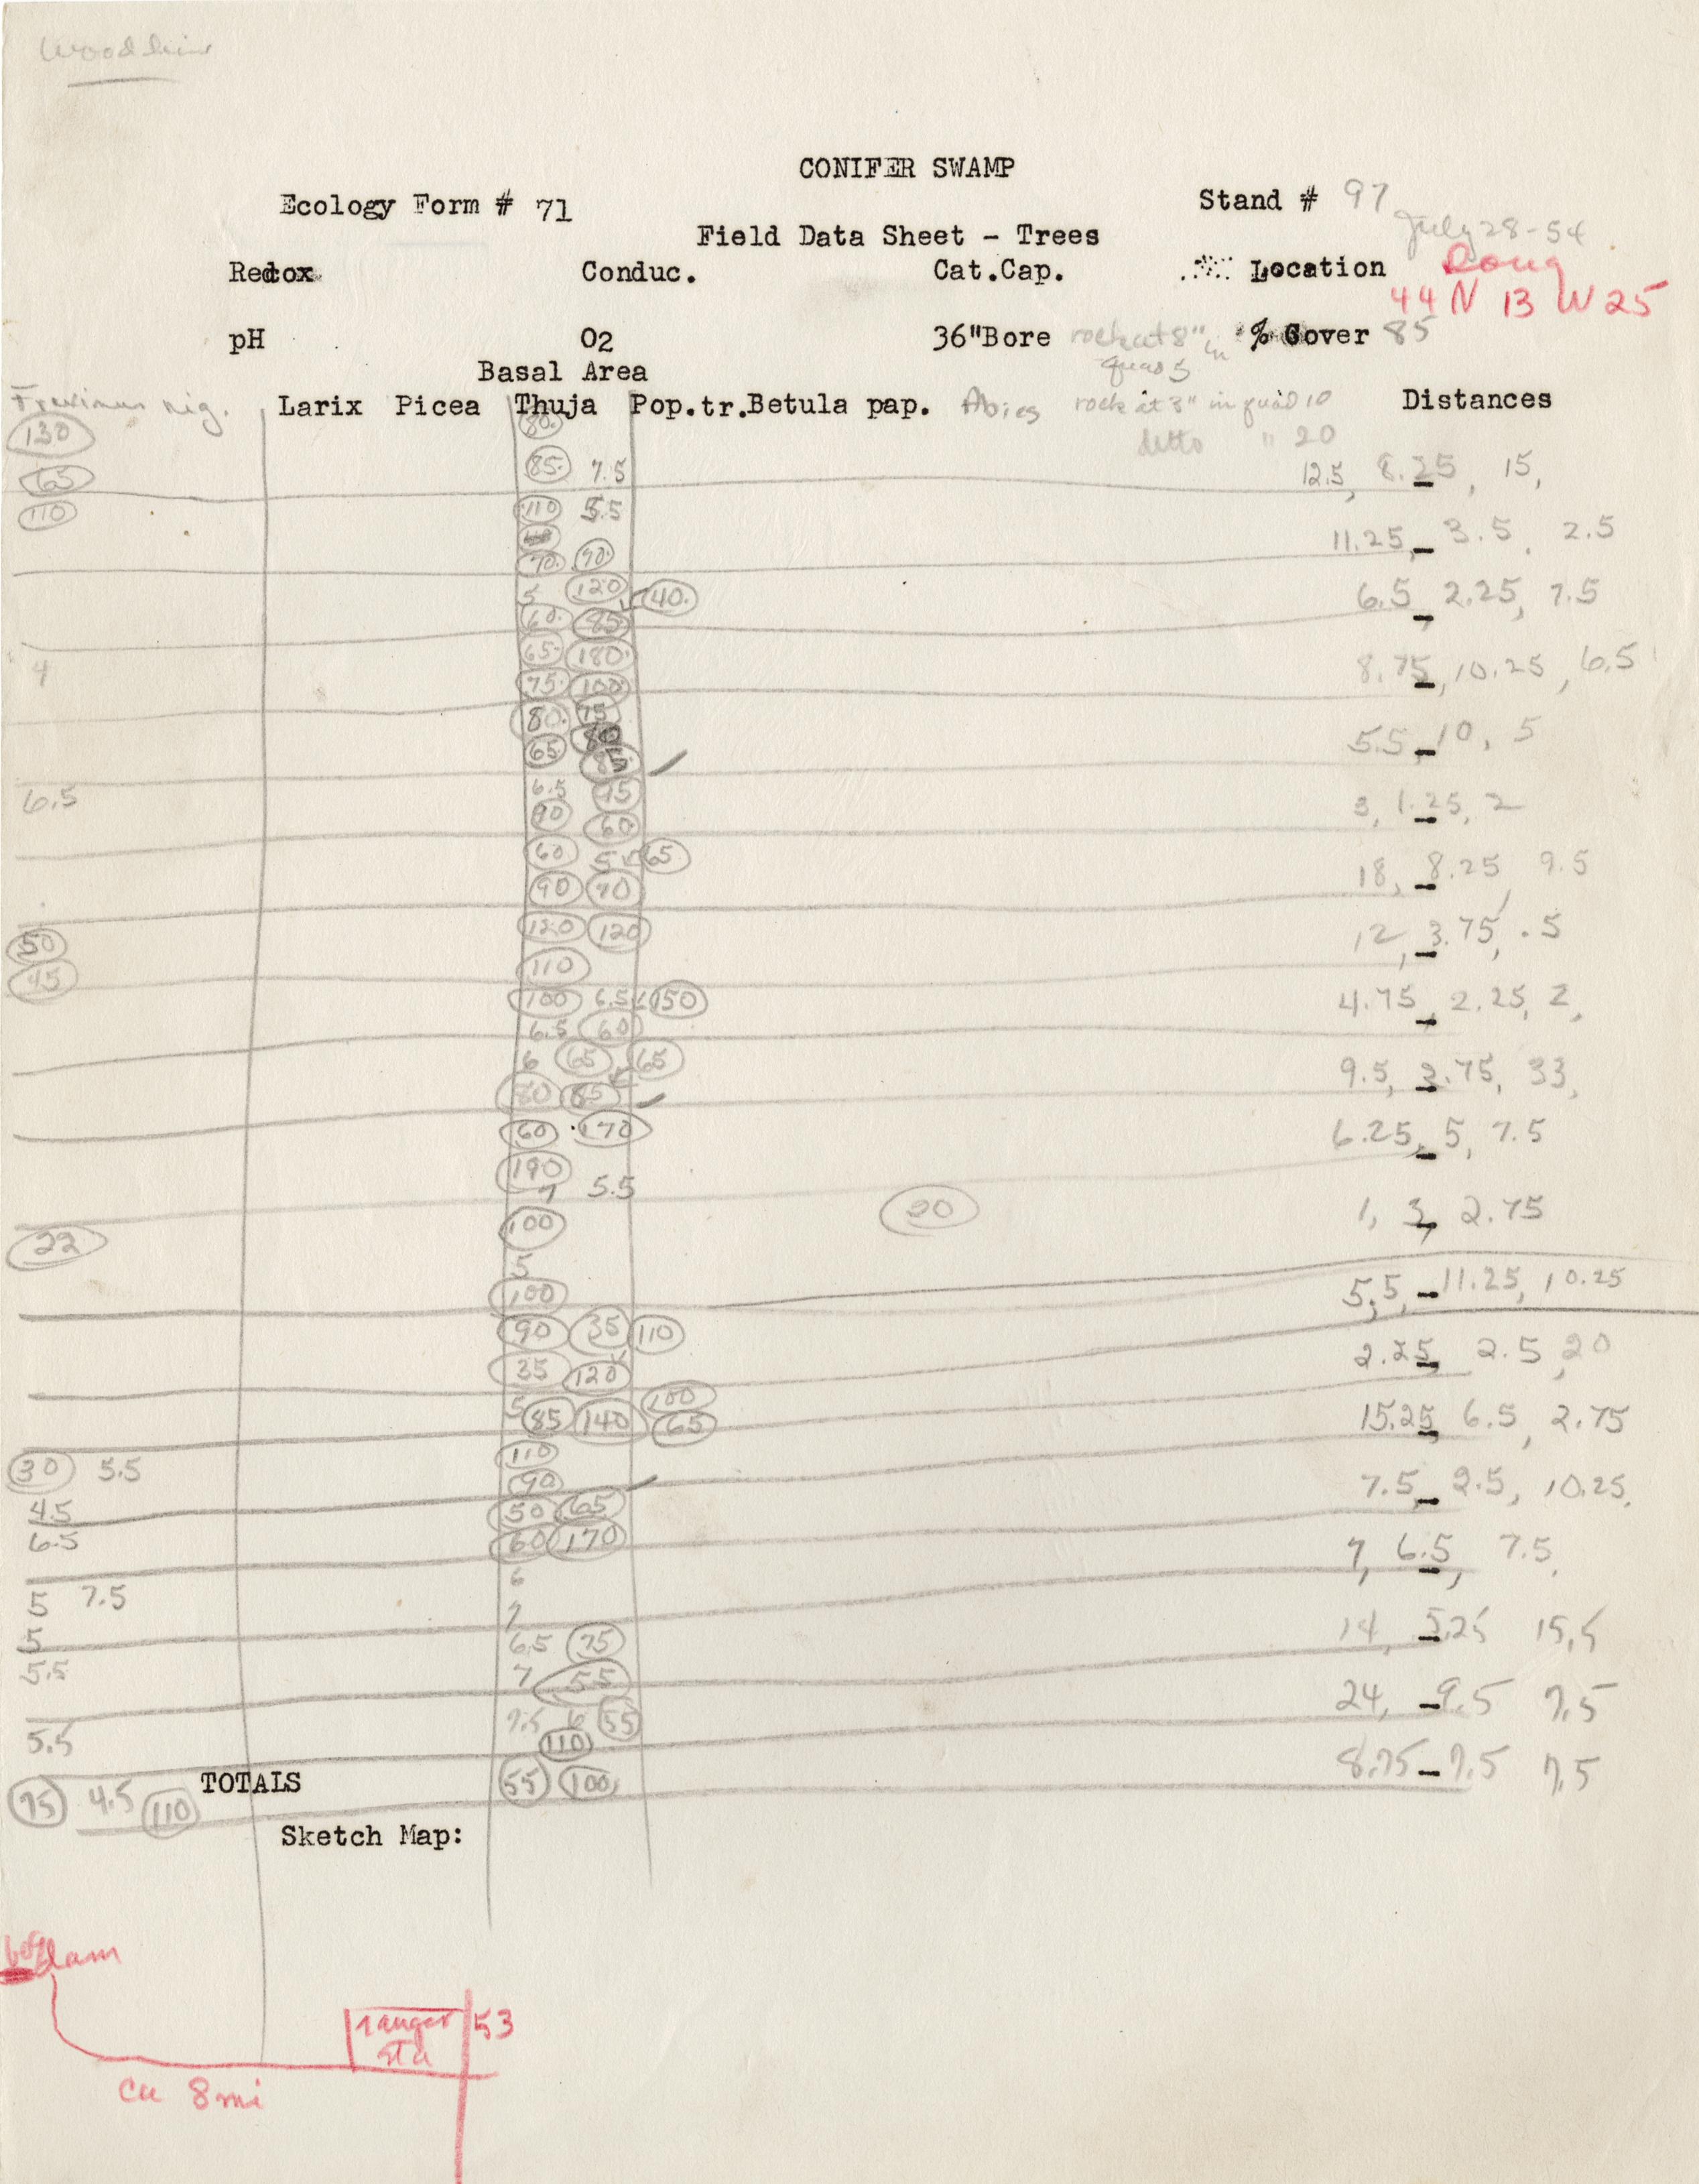 CONIFER SWAMP
Ecology Form # 71 Stand # 97
July 28-54
Field Data Sheet - Trees
Redox Conduc. Cat.Cap. Location Doug
44 N 13 W 25
pH O2 36"Bore rock at 8" in quad 5 % Cover 85
Basal Area
Fraxinus nig. Larix Picea Thuja Pop.tr. Betula pap. Abies rock at 3" in quad 10 Distances
130 80. ditto " 20
65 85. 7.5 12.5, 8.25, 15,
110 110 5.5
11.25, 3.5, 2.5
70. 90.
5 120 40. 6.5, 2.25, 7.5
60. 85.
4 65. 180. 8.75, 10.25, 6.5
75. 100
80. 75 5.5, 10, 5
65. 80
85
6.5 6.5 75 3, 1.25, 2
90 60.
60 5.5 65 18, 8.25, 9.5
90 70
50 120 120 12, 3.75, .5
45 110
100 6.5 150 4.75, 2.25, 2,
6.5 60
6 65 65 9.5, 3.75, 33,
80 85
60 170 6.25, 5, 7.5
190
7 5.5 20 1, 3, 2.75
22 100
5
100 5.5, 11.25, 10.25
90 35 110
35 120 2.25, 2.5, 20
5 100
85 140 65 15.25, 6.5, 2.75
30 5.5 110
90 7.5, 2.5, 10.25,
4.5 50 65
6.5 60 170 7, 6.5, 7.5,
5 7.5 6
5 7
6.5 75 14, 5.25 15.5
5.5 7 55
7.5 6 55 24, 9.5 7.5
5.5 110
75 4.5 110 TOTALS 55 100 8.75 7.5 7.5
Sketch Map:
dam
ranger 53
sta
ca 8 mi